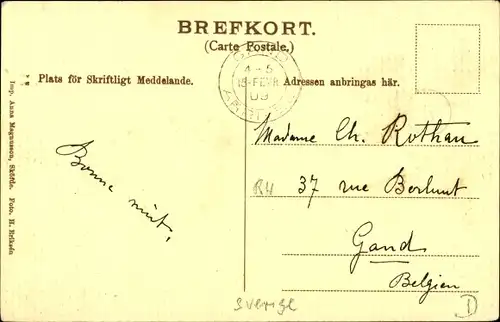 BREFKORT.
(Carte Postale.)
4-5
15-FEVR
09
Plats för Skriftligt Meddelande.
Adressen anbringas här.
Imp. Anna Magnusson, Sköttle. Foto. H. Eriksén
Bonne nuit,
Madame Ch. Rothan
R4
37 rue Berlunt
Gand
Belgien
Sverige